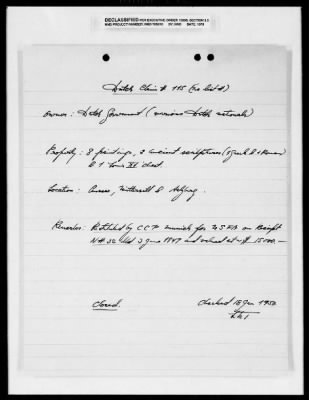 DECLASSIFIED PER EXECUTIVE ORDER 12065, SECTION 3-3
Dutch Claim # 115 (no list #)
Owner: Dutch Government (various Dutch nationals)
Property: 8 paintings, 2 ancient sculptures (1 Greek & 1 Roman)
& 1 Louis XV chest.
Location: Aussee, Mittersill &
Remarks: Restituted by CCP Munich for USFA on Receipt
N# 32 dtd 3 June 1947 and valued at $ 15000.—
Closed.
Checked 16 Jan 1950